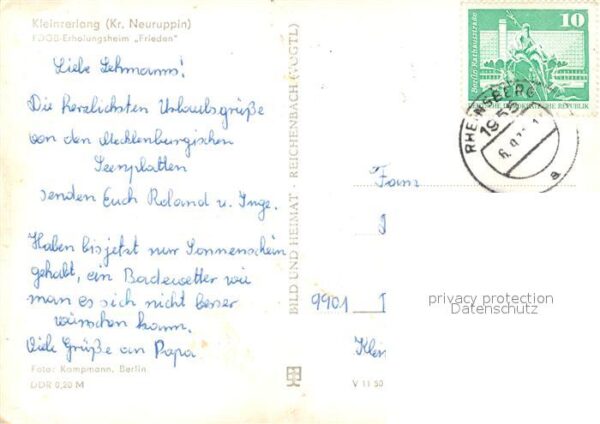 Kleinzerlang (Kr. Neuruppin)
FDGB-Erholungsheim „Frieden"
Liebe Lehmanns!
Die herzlichsten Urlaubsgrüße
von den Mecklenburgischen
Seenplatten
senden Euch Roland u. Inge.
Haben bis jetzt nur Sonnenschein
gehabt, ein Badewetter wie
man es sich nicht besser
wünschen kann.
Viele Grüße an Papa
Foto: Kampmann, Berlin
DDR 0,20 M
BILD UND HEIMAT · REICHENBACH (VOGTL)
V 11 50
10
Berlin, Rathausstraße
DEUTSCHE DEMOKRATISCHE REPUBLIK
RHEINSBERG
1955
a
Fam
9901
privacy protection
Datenschutz